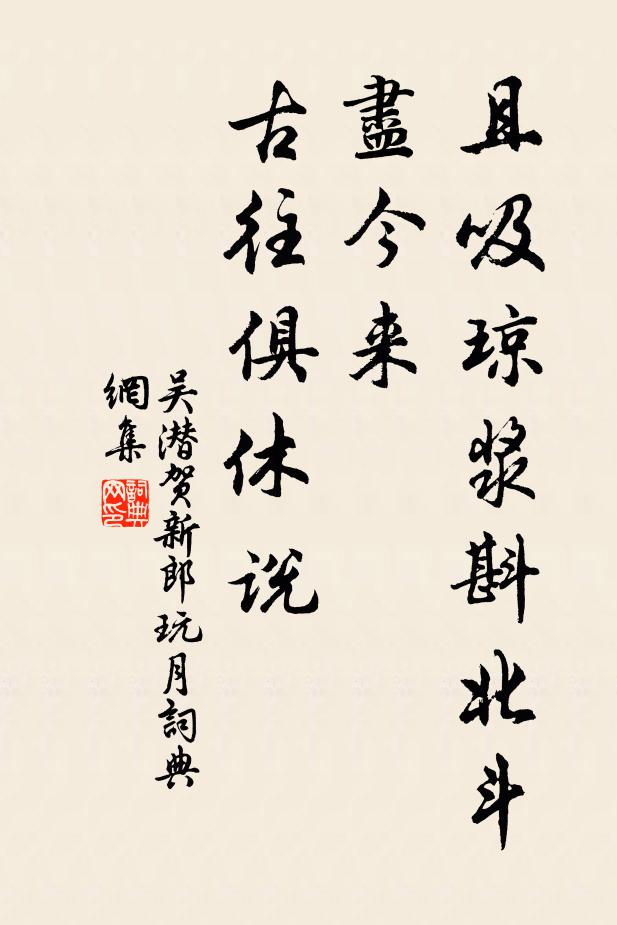 且吸琼浆斟北斗
盡今来
古往俱休说
吴潜贺新郎玩月詞典
網集
詞典网印